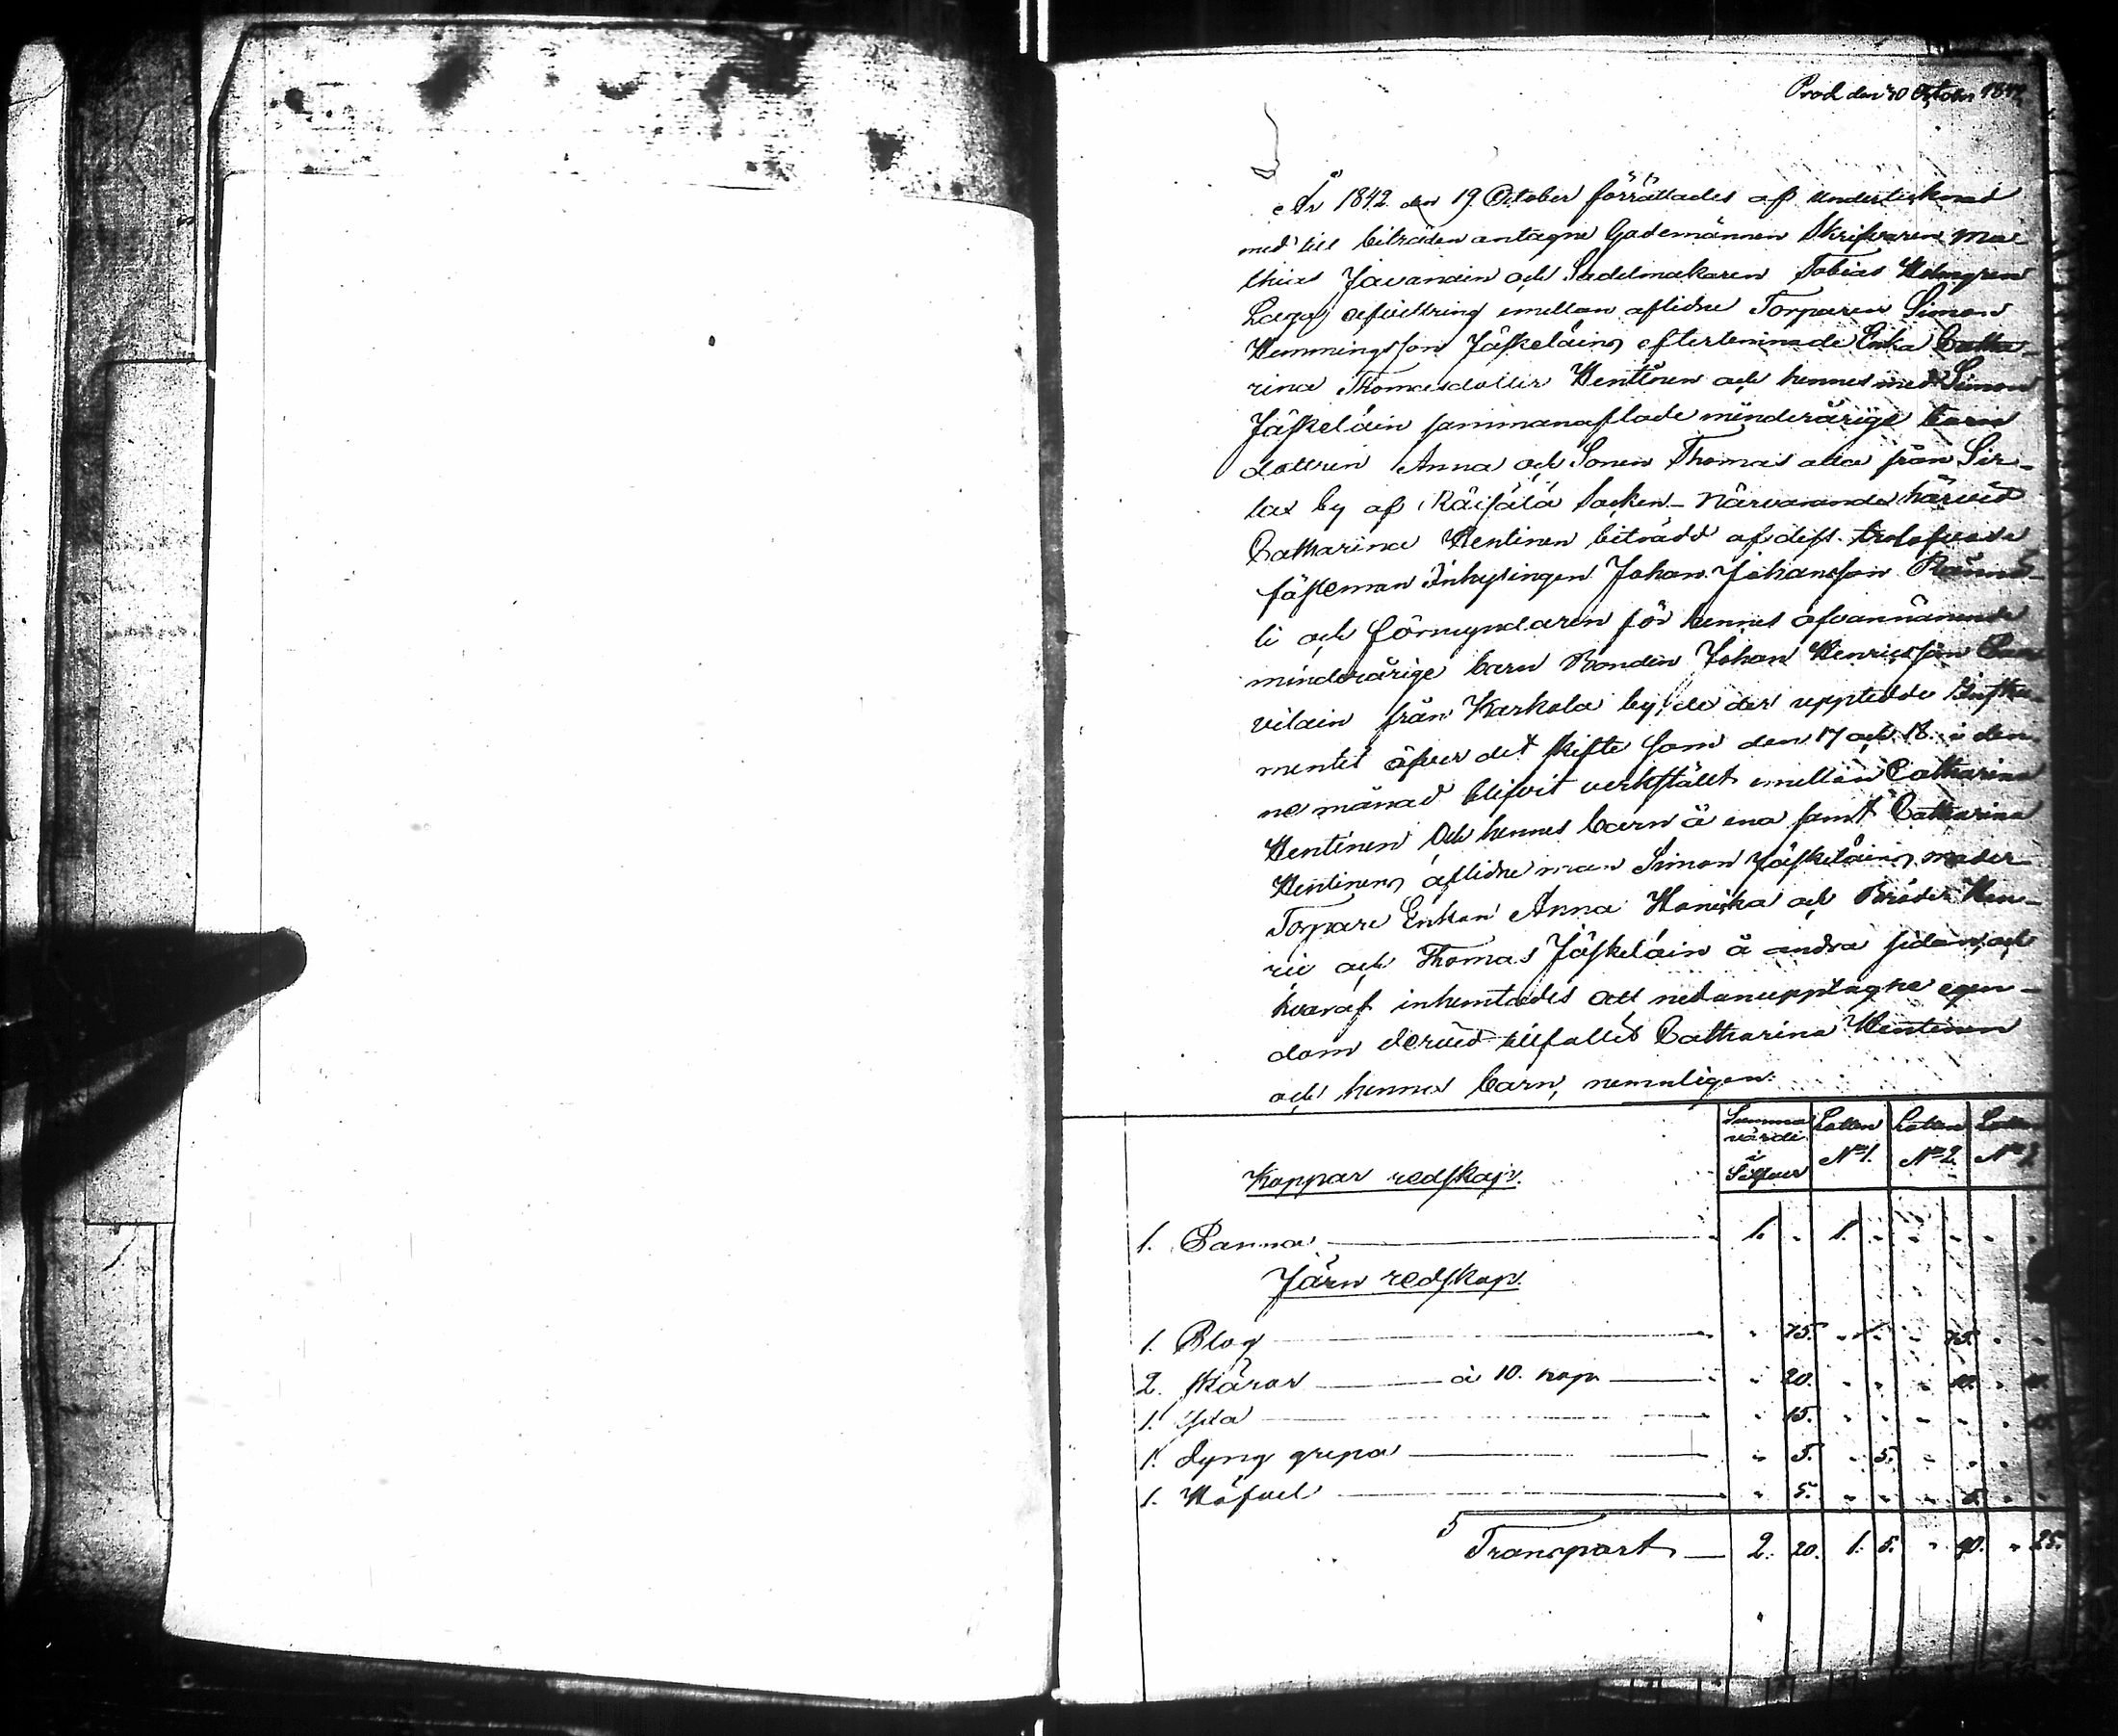 Prod den 20 October 1842
År 1842 den 19 October förrättades af undertecknad
med till biträden antagne Godemännen Skrifvaren Ma
thias Javanain och Sadelmakaren Tobias Holmgren
Laga afvittring emellan aflidne Torparen Simon
Hemmingsson Jäskeläins efterlemnade Enka Catha-
rina Thomasdotter Hentinen och hennes med Simon
Jäskeläin sammanaflade minderårige barn
dottren Anna och Sonen Thomas alla från Sir-
lax by af Räisälä Socken - Närvarande härvid
Catharina Hentinen biträdd af dess trolofvade
fästeman Inhysingen Johan Johansson
li och förmyndaren för hennes ofvannämnde
minderårige barn Bonden Johan Henricsson
vilain från Karhola by, de der upptedde Instru-
mentet öfver det skifte som den 17 och 18 i den-
ne månad blifvit verkstäldt emellan Catharina
Hentinen och hennes barn å ena samt Catharina
Hentinens aflidne man Simon Jäskeläins moder
Torpare Enkan Anna Honicka och Bröder Hen-
ric och Thomas Jäskeläin å andra sidan, och
hvaraf inhemtades att nedanupptagne egen-
dom dervid tillfallit Catharina Hentinen
och hennes barn, nemnligen:
Koppar redskap. Summa värde i Silfver Lotten No 1. Lotten No 2 Lotten No 3
1. Panna 1. " 1. " " " " "
Järn redskap.
1. Plog " 75. " " " 75. " "
2. Skäror à 10. kop " 20. " " " 10. " 10.
1. " 15. " " " " " 15.
1. Dyng grepa " 5. " 5. " " " "
1. Höfvel " 5. " " " 5. " "
Transport 2. 20. 1. 5. " 90. " 25.